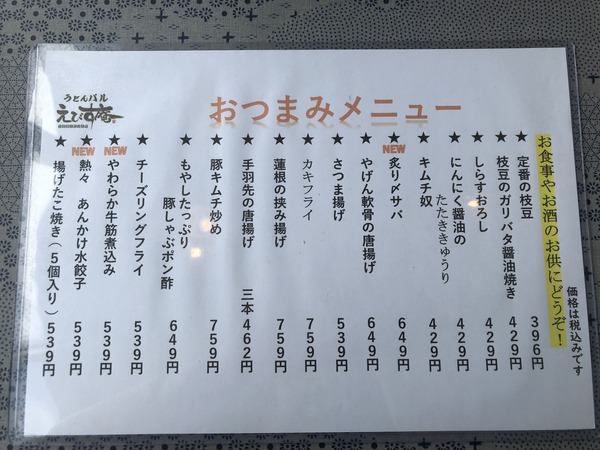 うどんバル
えびす庵
おつまみメニュー
お食事やお酒のお供にどうぞ！
価格は税込みです
★ 定番の枝豆 396円
★ 枝豆のガリバタ醤油焼き 429円
★ しらすおろし 429円
★ にんにく醤油の
たたききゅうり 429円
★ キムチ奴 429円
NEW
★ 炙り〆サバ 649円
★ やげん軟骨の唐揚げ 649円
★ さつま揚げ 539円
★ カキフライ 759円
★ 蓮根の挟み揚げ 759円
★ 手羽先の唐揚げ 三本 462円
★ 豚キムチ炒め 759円
★ もやしたっぷり
豚しゃぶポン酢 649円
★ チーズリングフライ 539円
NEW
★ やわらか牛筋煮込み 539円
NEW
★ 熱々 あんかけ水餃子 539円
★ 揚げたこ焼き（５個入り） 539円